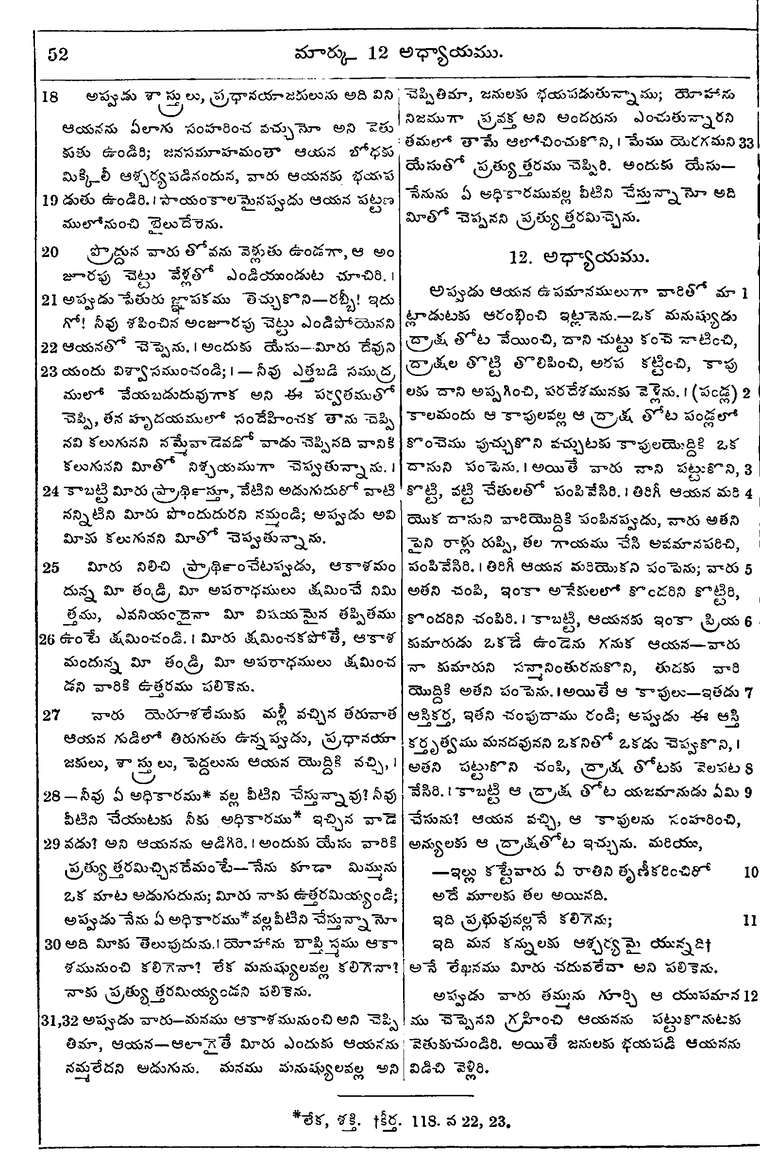 52
మార్కు 12 అధ్యాయము.
18 అప్పుడు శాస్త్రులు, ప్రధానయాజకులును అది విని
ఆయనను ఏలాగు సంహరించ వచ్చునో అని వెతు
కుతు ఉండిరి; జనసమూహమంతా ఆయన బోధకు
మిక్కిలీ ఆశ్చర్యపడినందున, వారు ఆయనకు భయప
19 డుతు ఉండిరి. । సాయంకాలమైనప్పుడు ఆయన పట్టణ
ములోనుంచి బైలుదేరెను.
20 ప్రొద్దున వారు తోవను వెళ్లుతు ఉండగా, ఆ అం
జూరపు చెట్టు వేళ్లతో ఎండియుండుట చూచిరి. ।
21 అప్పుడు పేతురు జ్ఞాపకము తెచ్చుకొని—రబ్బీ! ఇదు
గో! నీవు శపించిన అంజూరపు చెట్టు ఎండిపోయెనని
22 ఆయనతో చెప్పెను. । అందుకు యేసు—మీరు దేవుని
23 యందు విశ్వాసముంచండి; । — నీవు ఎత్తబడి సముద్ర
ములో వేయబడుదువుగాక అని ఈ పర్వతముతో
చెప్పి, తన హృదయములో సందేహించక తాను చెప్పి
నవి కలుగునని నమ్మేవాడెవడో వాడు చెప్పినది వానికి
కలుగునని మీతో నిశ్చయముగా చెప్పుతున్నాను. ।
24 కాబట్టి మీరు ప్రార్థిస్తూ, వేటిని అడుగుదురో వాటి
నన్నిటిని మీరు పొందుదురని నమ్మండి; అప్పుడు అవి
మీకు కలుగునని మీతో చెప్పుతున్నాను.
25 మీరు నిలిచి ప్రార్థించేటప్పుడు, ఆకాశమం
దున్న మీ తండ్రి మీ అపరాధములు క్షమించే నిమి
త్తము, ఎవనియందైనా మీ విషయమైన తప్పితము
26 ఉంటే క్షమించండి. । మీరు క్షమించకపోతే, ఆకాశ
మందున్న మీ తండ్రి మీ అపరాధములు క్షమించ
డని వారికి ఉత్తరము పలికెను.
27 వారు యెరూశలేముకు మళ్లీ వచ్చిన తరువాత
ఆయన గుడిలో తిరుగుతు ఉన్నప్పుడు, ప్రధానయా
జకులు, శాస్త్రులు, పెద్దలును ఆయన యొద్దికి వచ్చి, ।
28 —నీవు ఏ అధికారము* వల్ల వీటిని చేస్తున్నావు? నీవు
వీటిని చేయుటకు నీకు అధికారము* ఇచ్చిన వాడె
29 వడు? అని ఆయనను ఆడిగిరి. । అందుకు యేసు వారికి
ప్రత్యుత్తరమిచ్చినదేమంటే—నేను కూడా మిమ్మును
ఒక మాట అడుగుదును; మీరు నాకు ఉత్తరమియ్యండి;
అప్పుడు నేను ఏ అధికారము* వల్ల వీటిని చేస్తున్నానో
30 అది మీకు తెలుపుదును. । యోహాను బాప్తిస్మము ఆకా
శమునుంచి కలిగెనా? లేక మనుష్యులవల్ల కలిగెనా?
నాకు ప్రత్యుత్తరమియ్యండని పలికెను.
31,32 అప్పుడు వారు—మనము ఆకాశమునుంచి అని చెప్పి
తిమా, ఆయన—ఆలాగైతే మీరు ఎందుకు ఆయనను
నమ్మలేదని అడుగును. మనము మనుష్యులవల్ల అని
చెప్పితిమా, జనులకు భయపడుతున్నాము; యోహాను
నిజముగా ప్రవక్త అని అందరును ఎంచుతున్నారని
తమలో తామే ఆలోచించుకొని, । మేము యెరగమని 33
యేసుతో ప్రత్యుత్తరము చెప్పిరి. అందుకు యేసు—
నేనును ఏ అధికారమువల్ల వీటిని చేస్తున్నానో అది
మీతో చెప్పనని ప్రత్యుత్తరమిచ్చెను.
12. అధ్యాయము.
అప్పుడు ఆయన ఉపమానములుగా వారితో మా 1
ట్లాడుటకు ఆరంభించి ఇట్లనెను.—ఒక మనుష్యుడు
ద్రాక్ష తోట వేయించి, దాని చుట్టు కంచె నాటించి,
ద్రాక్షల తొట్టి తొలిపించి, అరప కట్టించి, కాపు
లకు దాని అప్పగించి, పరదేశమునకు వెళ్లెను. । (పండ్ల) 2
కాలమందు ఆ కాపులవల్ల ఆ ద్రాక్ష తోట పండ్లలో
కొంచెము పుచ్చుకొని వచ్చుటకు కాపులయొద్దికి ఒక
దాసుని పంపెను. । అయితే వారు వాని పట్టుకొని, 3
కొట్టి, వట్టి చేతులతో పంపివేసిరి. । తిరిగీ ఆయన మరి 4
యొక దాసుని వారియొద్దికి పంపినప్పుడు, వారు అతని
పైని రాళ్లు రుప్పి, తల గాయము చేసి అవమానపరిచి,
పంపివేసిరి. । తిరిగీ ఆయన మరియొకని పంపెను; వారు 5
అతని చంపి, ఇంకా అనేకులలో కొందరిని కొట్టిరి,
కొందరిని చంపిరి. । కాబట్టి, ఆయనకు ఇంకా ప్రియ 6
కుమారుడు ఒకడే ఉండెను గనుక ఆయన—వారు
నా కుమారుని సన్మానింతురనుకొని, తుదకు వారి
యొద్దికి అతని పంపెను. । అయితే ఆ కాపులు—ఇతడు 7
ఆస్తికర్త, ఇతని చంపుదాము రండి; అప్పుడు ఈ ఆస్తి
కర్తృత్వము మనదవునని ఒకనితో ఒకడు చెప్పుకొని, ।
అతని పట్టుకొని చంపి, ద్రాక్ష తోటకు వెలపట 8
వేసిరి. । కాబట్టి ఆ ద్రాక్ష తోట యజమానుడు ఏమి 9
చేసును? ఆయన వచ్చి, ఆ కాపులను సంహరించి,
అన్యులకు ఆ ద్రాక్షతోట ఇచ్చును. మరియు,
—ఇల్లు కట్టేవారు ఏ రాతిని తృణీకరించిరో 10
అదే మూలకు తల అయినది.
ఇది ప్రభువువల్లనే కలిగెను; 11
ఇది మన కన్నులకు ఆశ్చర్యమై యున్నది†
అనే లేఖనము మీరు చదువలేదా అని పలికెను.
అప్పుడు వారు తమ్మును గూర్చి ఆ యుపమాన 12
ము చెప్పెనని గ్రహించి ఆయనను పట్టుకొనుటకు
వెతుకుచుండిరి. అయితే జనులకు భయపడి ఆయనను
విడిచి వెళ్లిరి.
*లేక, శక్తి. †కీర్త. 118. వ 22, 23.